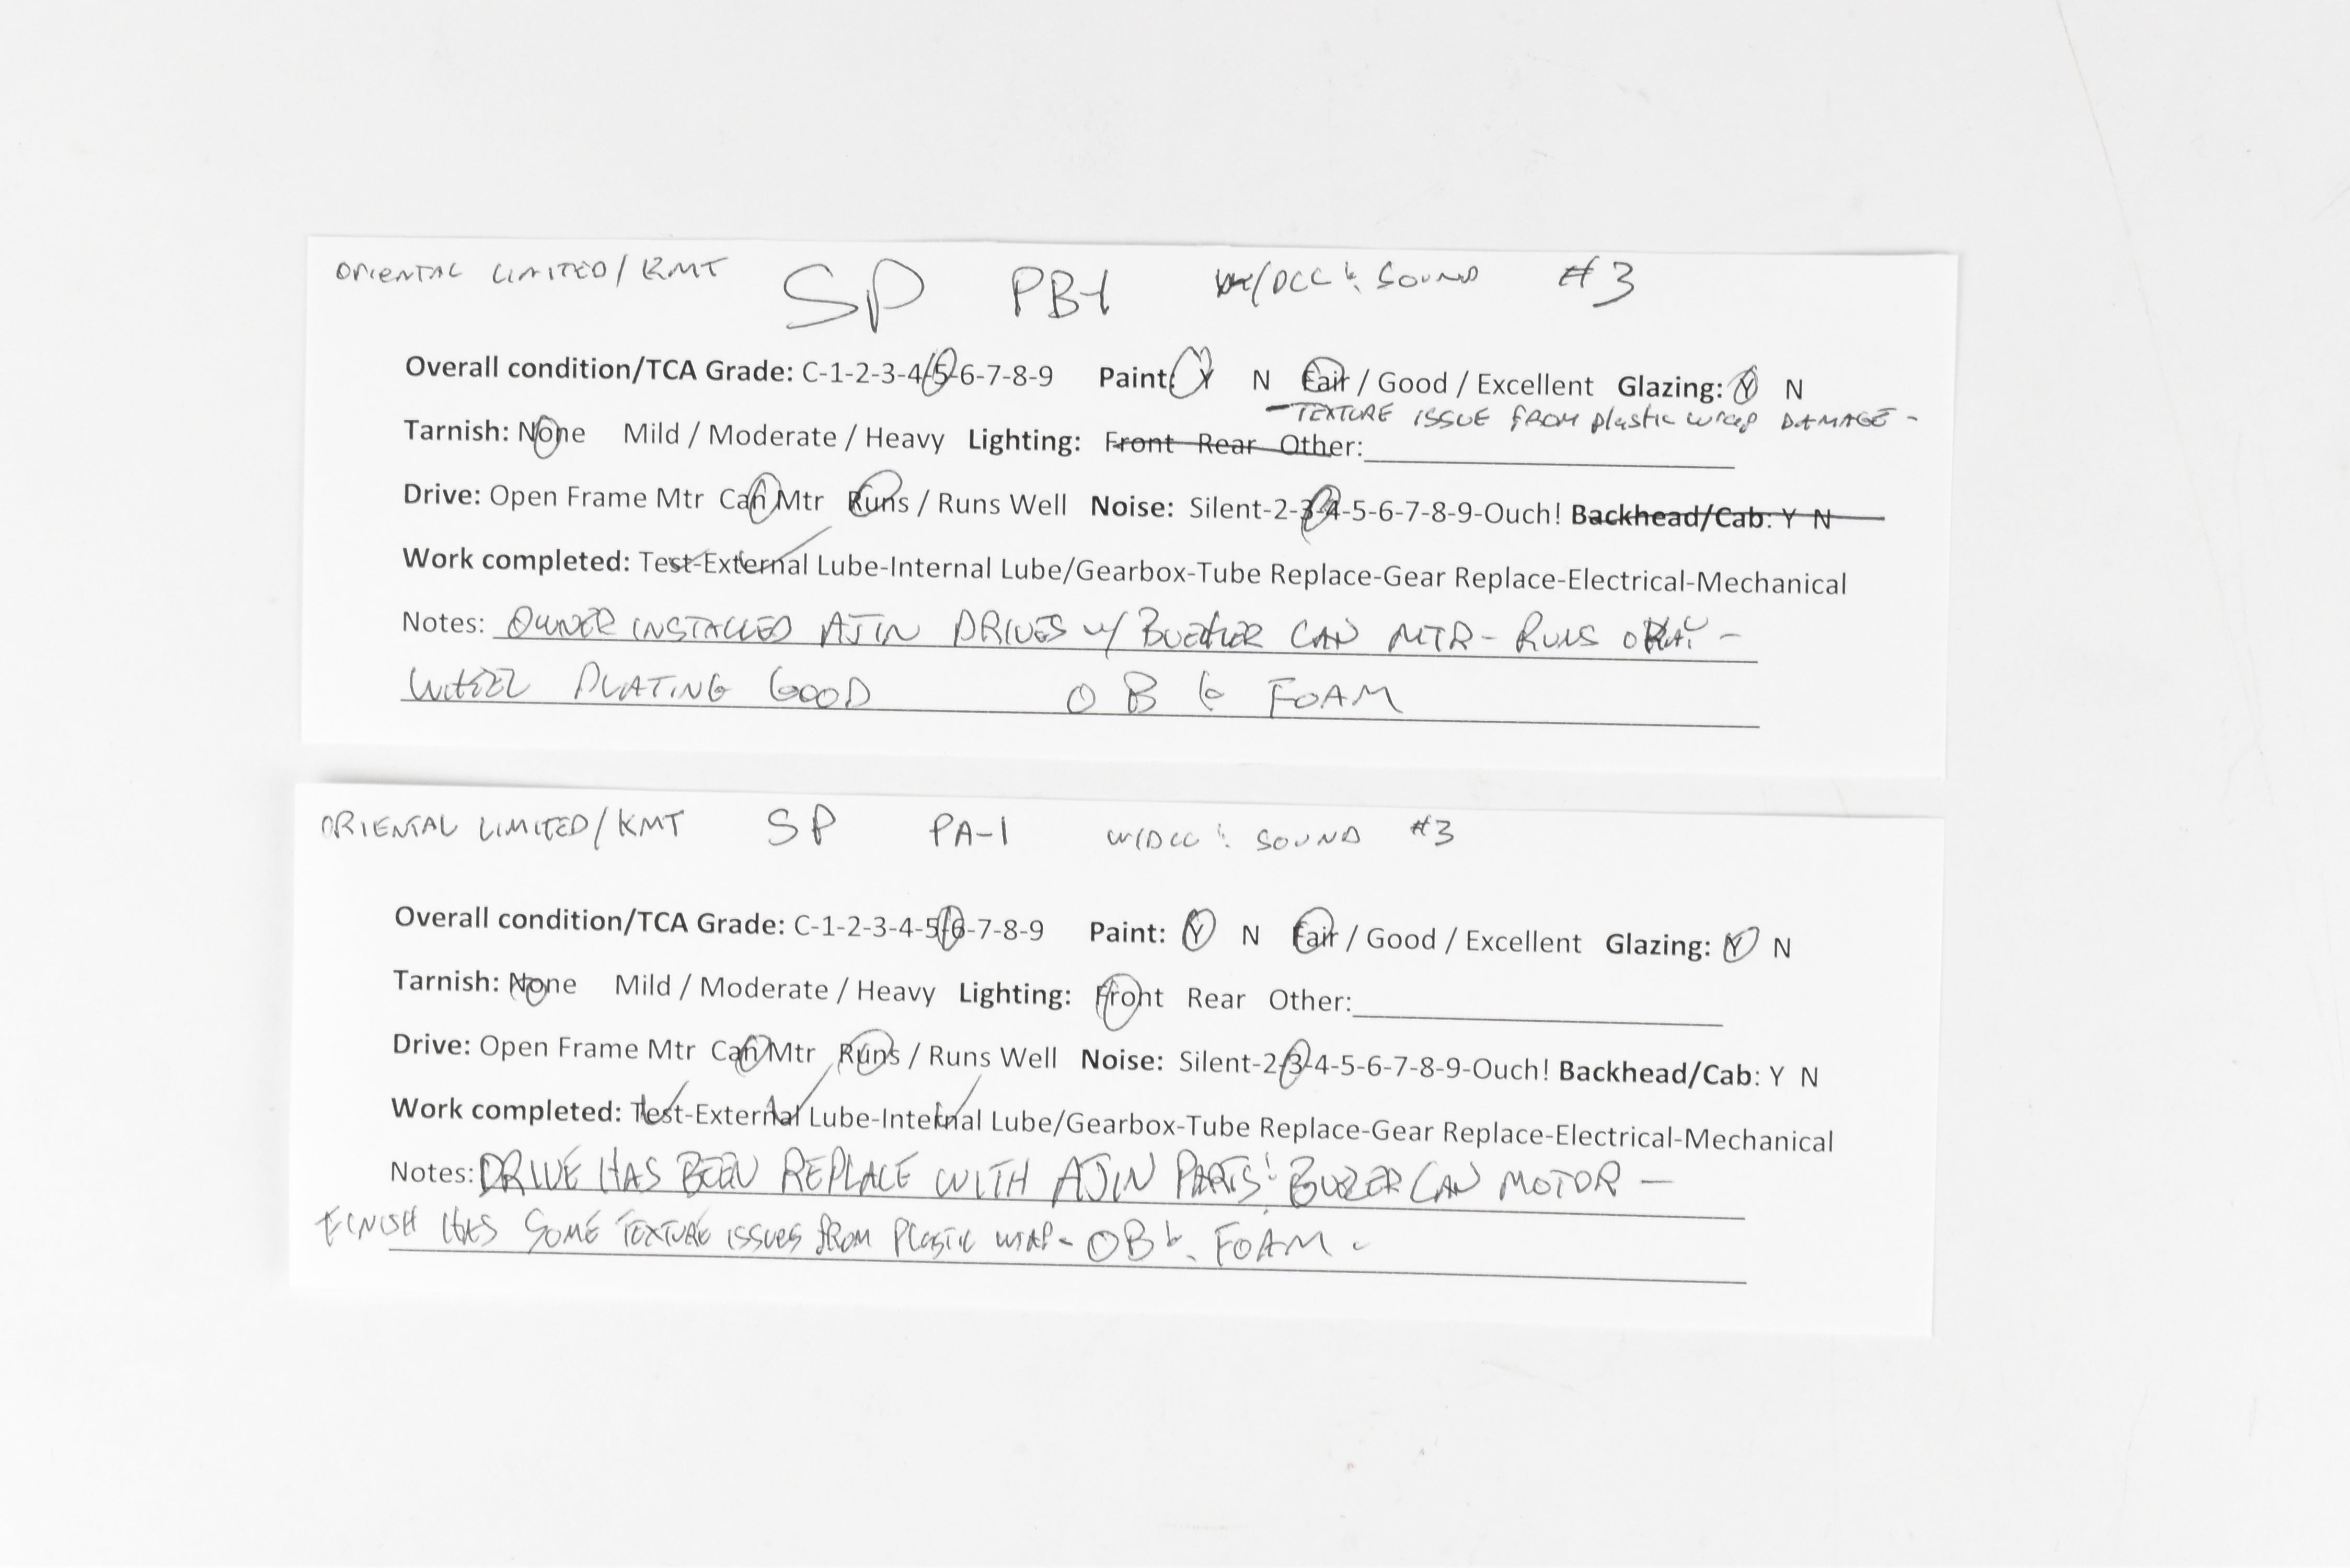 ORIENTAL LIMITED/KMT SP PB-1 W/DCC & SOUND #3
Overall condition/TCA Grade: C-1-2-3-4-5-6-7-8-9 Paint: Y N Fair / Good / Excellent Glazing: Y N
-TEXTURE ISSUE FROM plastic wrap DAMAGE-
Tarnish: None Mild / Moderate / Heavy Lighting: Front Rear Other:
Drive: Open Frame Mtr Can Mtr Runs / Runs Well Noise: Silent-2-3-4-5-6-7-8-9-Ouch! Backhead/Cab: Y N
Work completed: Test-External Lube-Internal Lube/Gearbox-Tube Replace-Gear Replace-Electrical-Mechanical
Notes: OWNER INSTALLED AJIN DRIVES w/ CAN MTR- RUNS OKAY-
WHEEL PLATING GOOD OB & FOAM
ORIENTAL LIMITED/KMT SP PA-1 W/DCC & SOUND #3
Overall condition/TCA Grade: C-1-2-3-4-5-6-7-8-9 Paint: Y N Fair / Good / Excellent Glazing: Y N
Tarnish: None Mild / Moderate / Heavy Lighting: Front Rear Other:
Drive: Open Frame Mtr Can Mtr Runs / Runs Well Noise: Silent-2-3-4-5-6-7-8-9-Ouch! Backhead/Cab: Y N
Work completed: Test-External Lube-Internal Lube/Gearbox-Tube Replace-Gear Replace-Electrical-Mechanical
Notes: DRIVE HAS BEEN REPLACE WITH AJIN PARTS & CAN MOTOR -
FINISH HAS SOME TEXTURE ISSUES FROM PLASTIC WRAP- OB & FOAM -